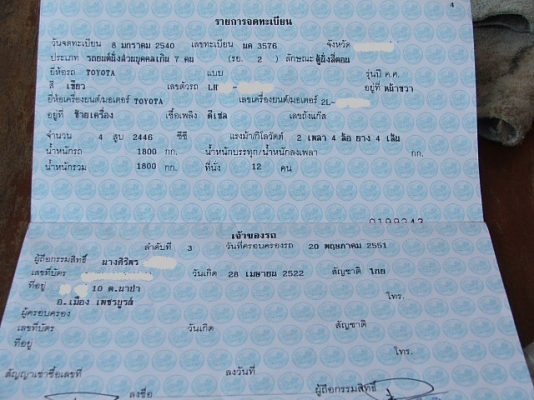 4
รายการจดทะเบียน
วันจดทะเบียน 8 มกราคม 2540 เลขทะเบียน มค 3576 จังหวัด
ประเภท รถยนต์นั่งส่วนบุคคลเกิน 7 คน (รย. 2 ) ลักษณะ ตู้นั่งสี่ตอน
ยี่ห้อรถ TOYOTA แบบ รุ่นปี ค.ศ.
สี เขียว เลขตัวรถ LH อยู่ที่ หน้าขวา
ยี่ห้อเครื่องยนต์/มอเตอร์ TOYOTA เลขเครื่องยนต์/มอเตอร์ 2L-
อยู่ที่ ซ้ายเครื่อง เชื้อเพลิง ดีเซล เลขถังแก๊ส
จำนวน 4 สูบ 2446 ซีซี แรงม้า/กิโลวัตต์ 2 เพลา 4 ล้อ ยาง 4 เส้น
น้ำหนักรถ 1800 กก. น้ำหนักบรรทุก/น้ำหนักลงเพลา กก.
น้ำหนักรวม 1800 กก. ที่นั่ง 12 คน
เจ้าของรถ
ลำดับที่ 3 วันที่ครอบครองรถ 20 พฤษภาคม 2551
ผู้ถือกรรมสิทธิ์ นางศิริพร
เลขที่บัตร วันเกิด 28 เมษายน 2522 สัญชาติ ไทย
ที่อยู่ 10 ต.นาป่า โทร.
อ.เมือง เพชรบูรณ์
ผู้ครอบครอง
เลขที่บัตร วันเกิด สัญชาติ
ที่อยู่ โทร.
สัญญาเช่าซื้อเลขที่ ลงวันที่
ลงชื่อ ผู้ถือกรรมสิทธิ์